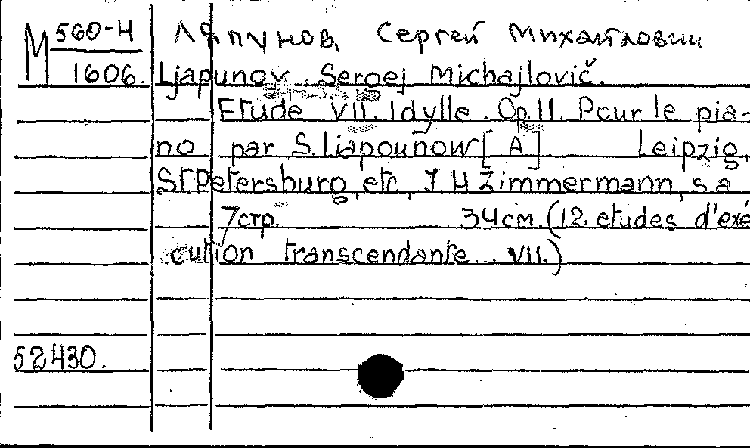 М 560-Н Ляпунов, Сергей Михайлович
1606. Ljapunov. Sergej Michajlovič.
Etude VII. Idylle. Op. 11. Pour le pia-
no par S. Liapounow [A] Leipzig,
St Petersburg, etc, J H Zimmermann, s. a
7 стр. 34 см. (12 etudes d'exé
cution transcendante. VII.)
52430.